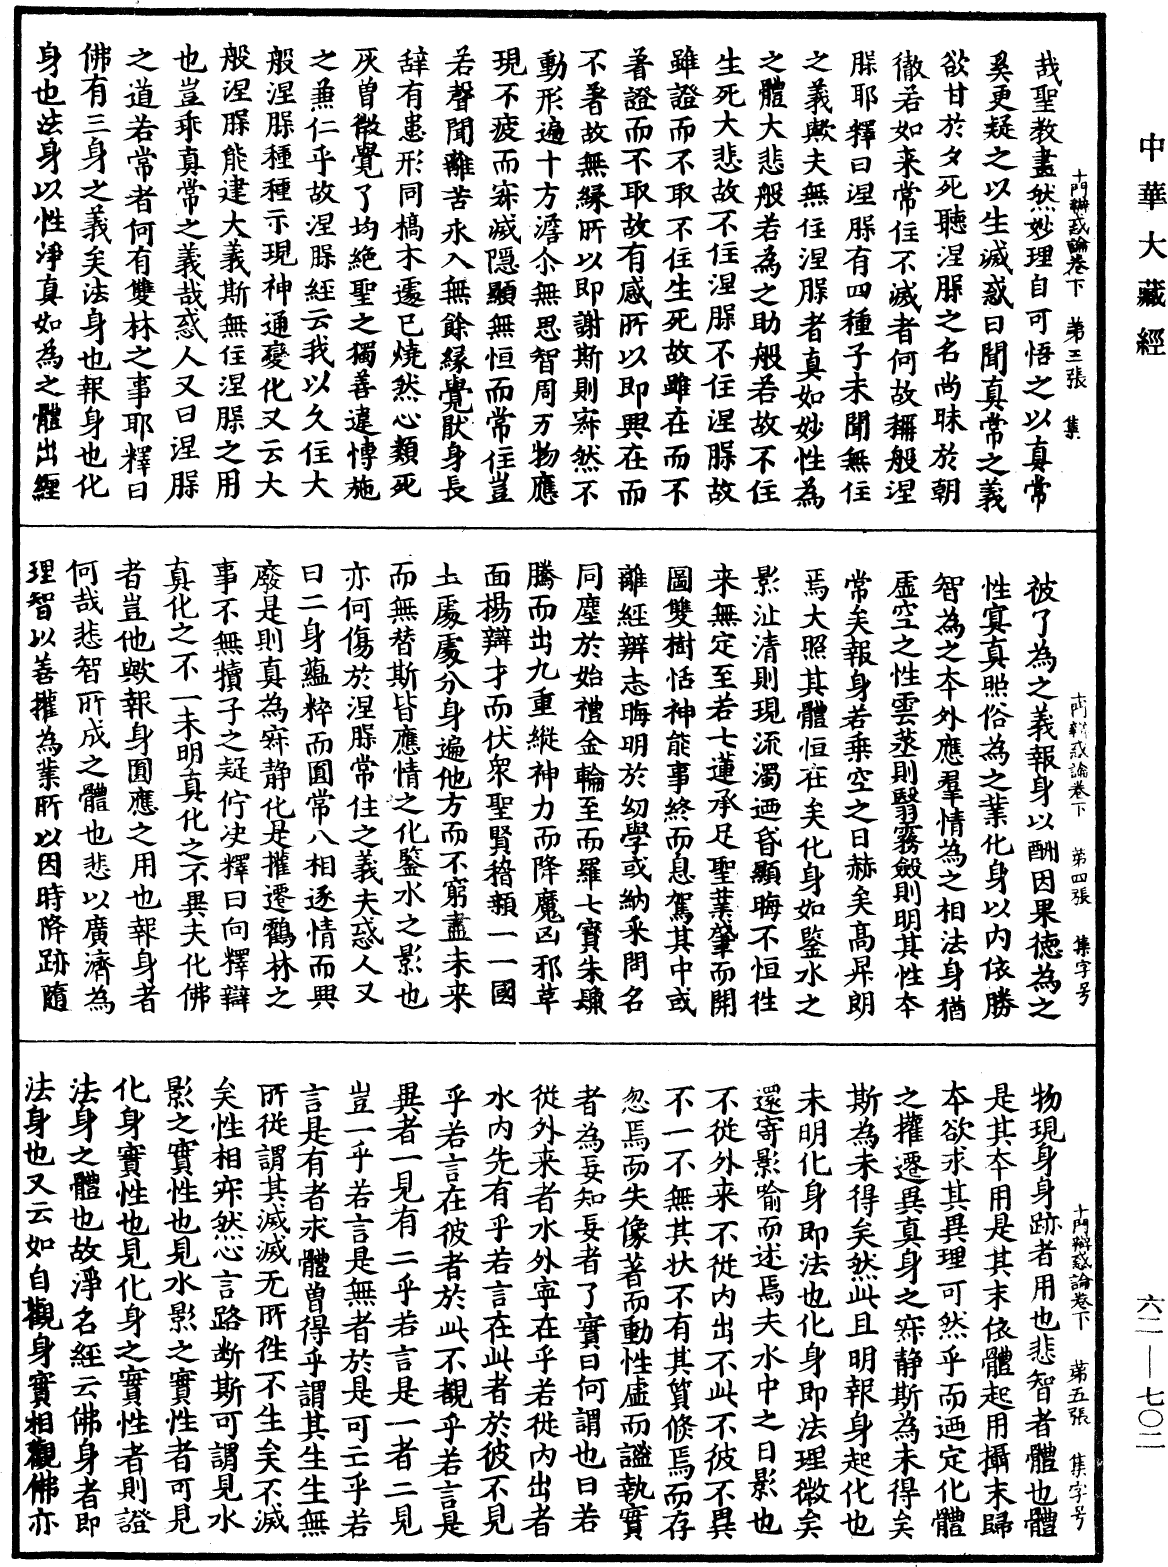 中華大藏經
十門辯惑論卷下　第三張　集
哉聖教晝然妙理自可悟之以真常
奚更疑之以生滅惑曰聞真常之義
欲甘於夕死聽涅脲之名尚昧於朝
徹若如来常住不滅者何故稱般涅
脲耶釋曰涅脲有四種子未聞無住
之義歟夫無住涅脲者真如妙性為
之體大悲般若為之助般若故不住
生死大悲故不住涅脲不住涅脲故
雖證而不取不住生死故雖在而不
著證而不取故有感所以即興在而
不著故無緣所以即謝斯則寂然不
動形遍十方澹尒無思智周万物應
現不疲而寂滅隱顯無恒而常住豈
若聲聞離苦永入無餘緣覺猒身長
辭有患形同槁木遽已燒然心類死
灰曽微覺了均絶聖之獨善違愽施
之兼仁乎故涅脲經云我以久住大
般涅脲種種示現神通變化又云大
般涅脲能建大義斯無住涅脲之用
也豈乖真常之義哉惑人又曰涅脲
之道若常者何有雙林之事耶釋曰
佛有三身之義矣法身也報身也化
身也法身以性淨真如為之體出經
十門辯惑論卷下　第四張　集字号
彼了為之義報身以酬因果德為之
性寘真照俗為之業化身以内依勝
智為之夲外應羣情為之相法身猶
虚空之性雲蒸則翳霧斂則明其性夲
常矣報身若乗空之日赫矣髙昇朗
焉大照其體恒在矣化身如鑒水之
影沚清則現流濁迺昏顯晦不恒往
来無定至若七蓮承足聖業肇而開
圖雙樹恬神能事終而息駕其中或
離經辨志晦明於幼學或納采問名
同塵於始禮金輪至而羅七寳朱𩦺
騰而出九重縱神力而降魔囟邪草
面揚辯才而伏衆聖賢稽顙一一國
土處處分身遍他方而不窮盡未来
而無替斯皆應情之化鑒水之影也
亦何傷於涅脲常住之義夫惑人又
曰二身蘊粹而圓常八相逐情而興
廢是則真為寂静化是㩲遷鶴林之
事不無犢子之疑佇决釋曰向釋辯
真化之不一未明真化之不異夫化佛
者豈他歟報身圓應之用也報身者
何哉悲智所成之體也悲以廣濟為
理智以善㩲為業所以因時降跡隨
十門辯惑論卷下　第五張　集字号
物現身身跡者用也悲智者體也體
是其夲用是其末依體起用攝末歸
夲欲求其異理可然乎而迺定化體
之㩲遷異真身之寂静斯為未得矣
斯為未得矣然此且明報身起化也
未明化身即法也化身即法理微矣
還寄影喻而述焉夫水中之日影也
不從外来不從内出不此不彼不異
不一不無其状不有其質倏焉而存
忽焉而失像著而動性虚而謐執實
者為妄知妄者了實曰何謂也曰若
從外来者水外寧在乎若從内出者
水内先有乎若言在此者於彼不見
乎若言在彼者於此不覩乎若言是
異者一見有二乎若言是一者二見
豈一乎若言是無者於是可亡乎若
言是有者求體曽得乎謂其生生無
所從謂其滅滅无所徃不生矣不滅
矣性相寂然心言路断斯可謂見水
影之實性也見水影之實性者可見
化身實性也見化身之實性者則證
法身之體也故淨名經云佛身者即
法身也又云如自觀身實相觀佛亦
六二—七〇二